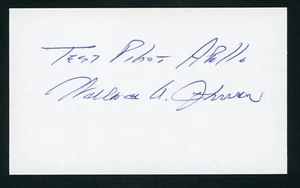 Test Pilot Apollo
Wallace A. Johnson